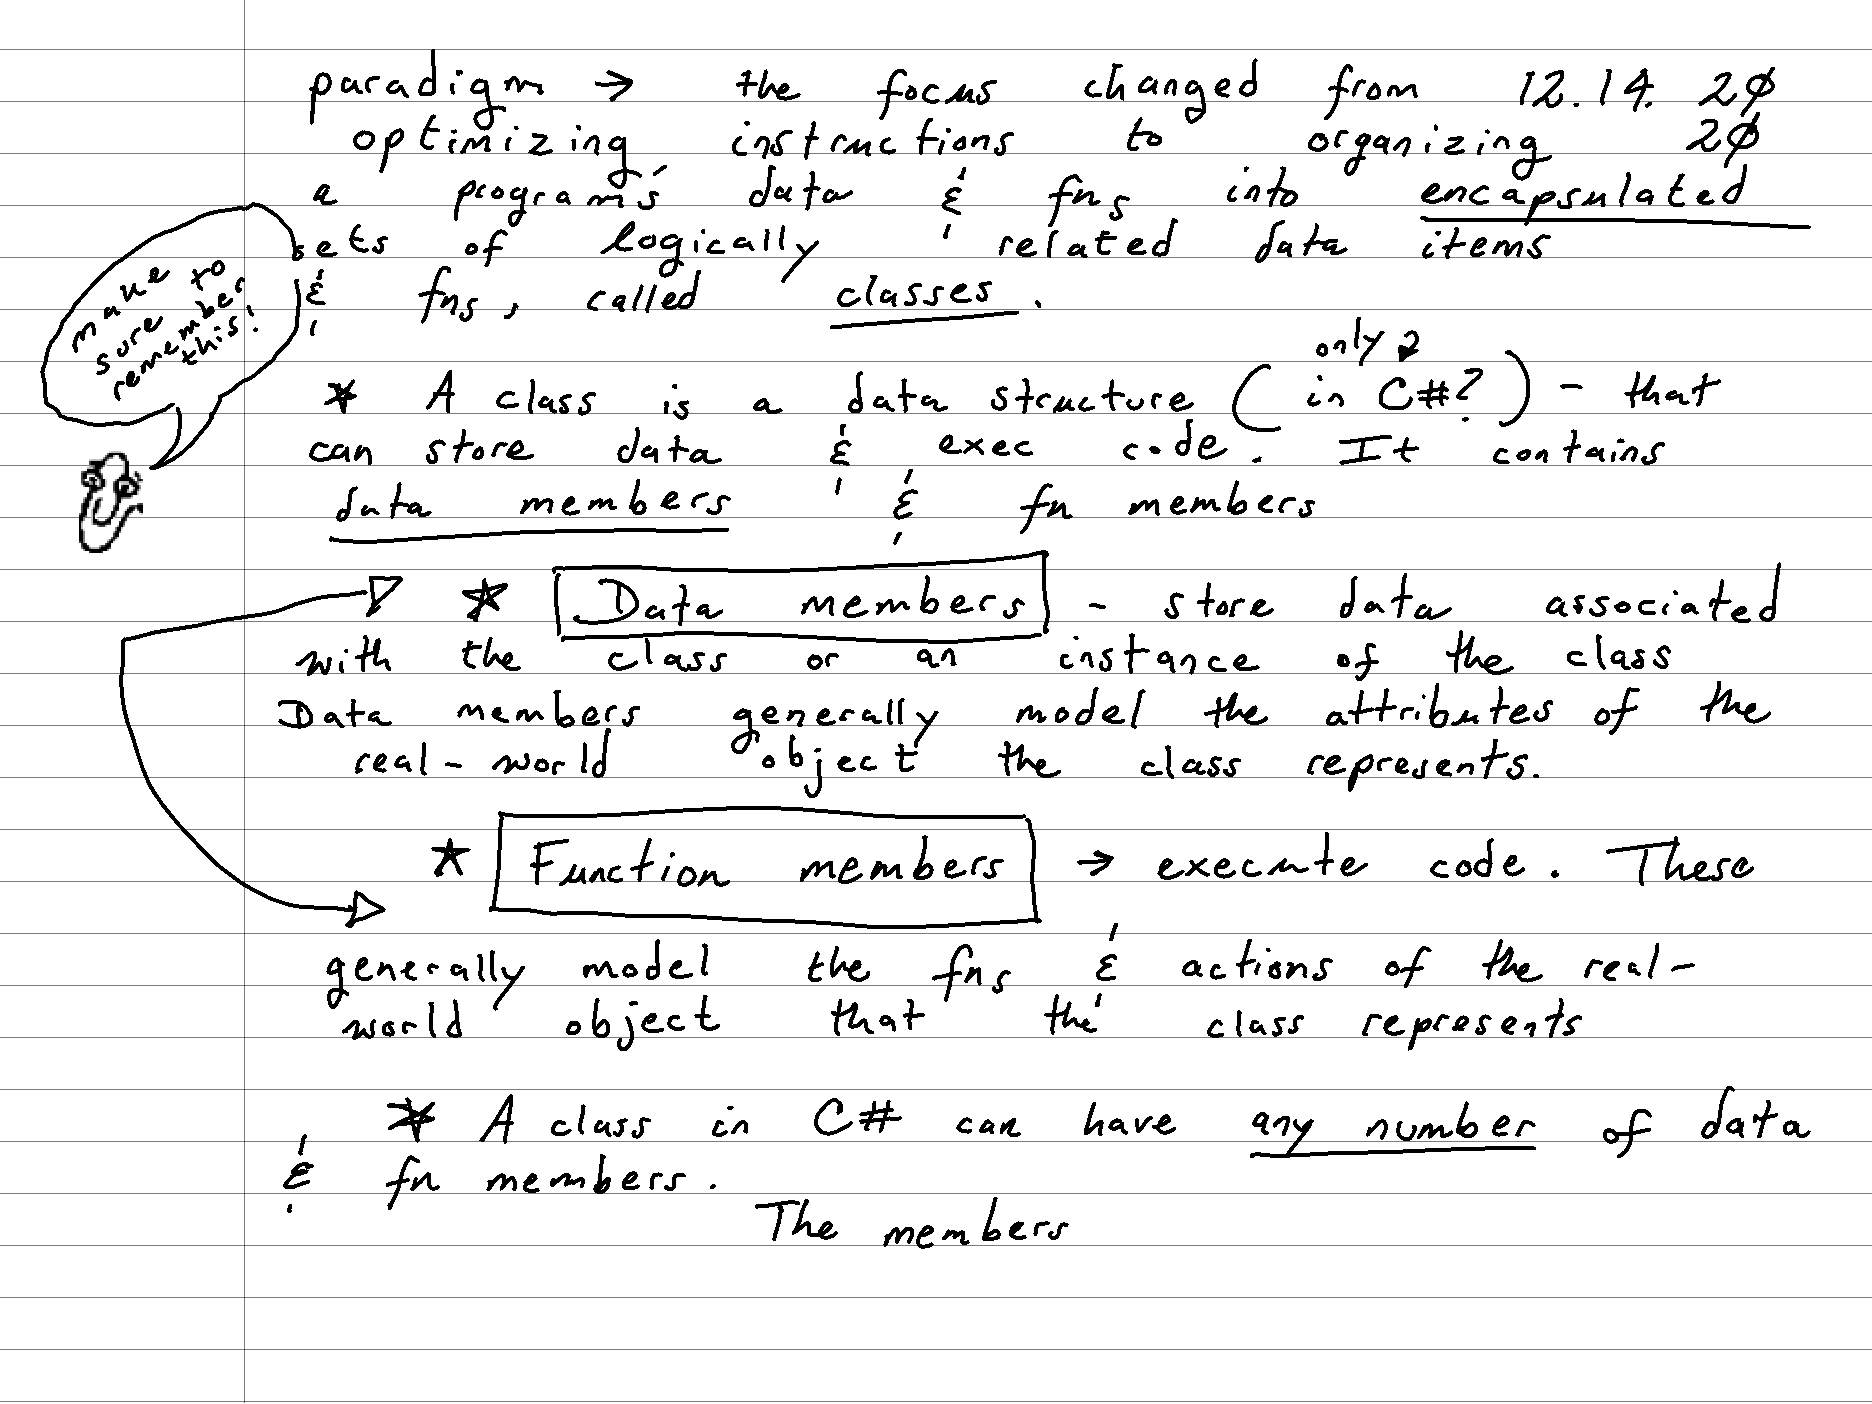 paradigm → the focus changed from 12.14. 2Ø
optimizing instructions to organizing 2Ø
a program's data & fns into encapsulated
sets of logically related data items
& fns, called classes.
make to
sure
remember
this!
only
★ A class is a data structure (in C#?) - that
can store data & exec code. It contains
data members & fn members
★ Data members - store data associated
with the class or an instance of the class
Data members generally model the attributes of the
real-world object the class represents.
★ Function members → execute code. These
generally model the fns & actions of the real-
world object that the class represents
★ A class in C# can have any number of data
& fn members.
The members